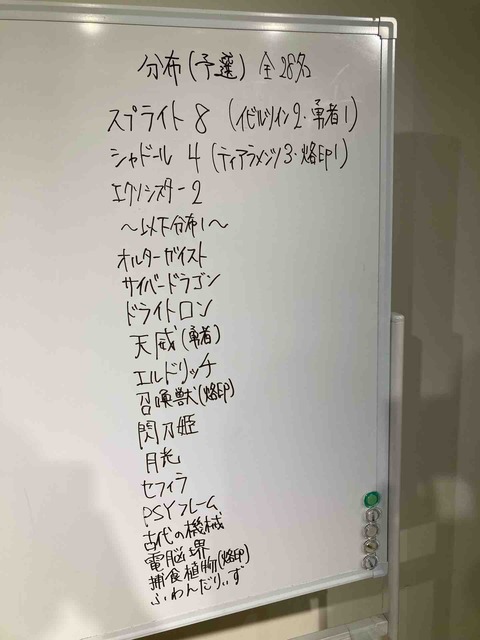 分布(予選) 全28名
スプライト 8 (イビルツイン2・勇者1)
シャドール 4 (ティアラメンツ3・烙印1)
エクソシスター 2
〜以下分布1〜
オルターガイスト
サイバードラゴン
ドライトロン
天威(勇者)
エルドリッチ
召喚獣(烙印)
閃刀姫
月光
セフィラ
PSYフレーム
古代の機械
電脳堺
捕食植物(烙印)
ふわんだりぃず